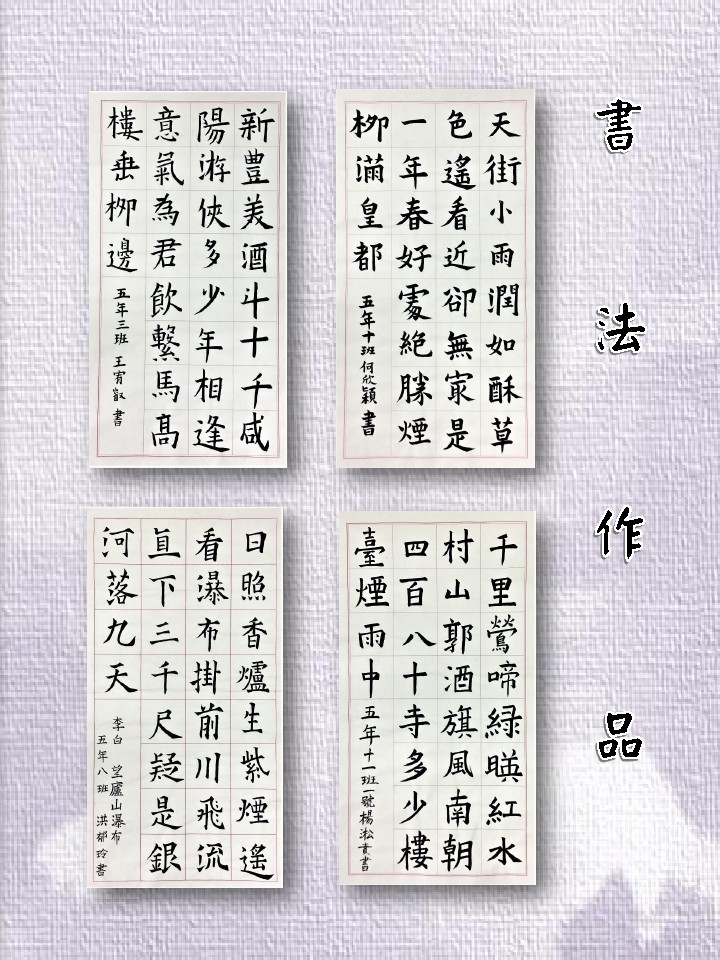 書法作品
天街小雨潤如酥草
色遙看近卻無寂是
一年春好處絕勝煙
柳滿皇都
五年十班何欣穎書
新豐美酒斗十千咸
陽游俠多少年相逢
意氣為君飲繫馬高
樓垂柳邊
五年三班 王宥叡 書
千里鶯啼綠暎紅水
村山郭酒旗風南朝
四百八十寺多少樓
臺煙雨中
五年十一班一號楊淞貴書
日照香爐生紫煙遙
看瀑布掛前川飛流
直下三千尺疑是銀
河落九天
李白 望廬山瀑布
五年八班 洪郁玲書